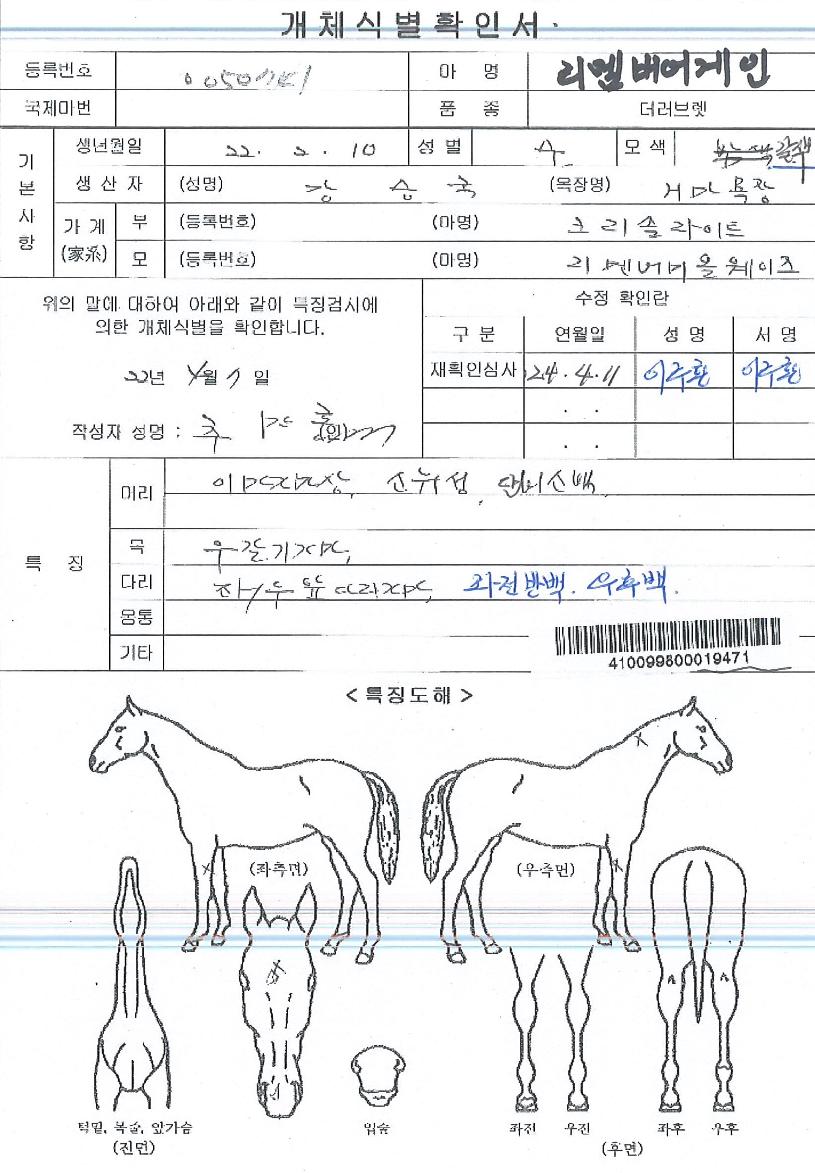 개체식별확인서
등록번호 0050741 마 명 리멤버어게인
국제마번 품 종 더러브렛
기본사항
생년월일 22. 2. 10 성별 수 모색 갈색
생산자 (성명) 강 승 국 (목장명) 거마목장
가계(家系) 부 (등록번호) (마명) 크리솔라이트
모 (등록번호) (마명) 리멤버미올웨이즈
위의 말에 대하여 아래와 같이 특징검사에
의한 개체식별을 확인합니다.
수정 확인란
구 분 연월일 성 명 서 명
22년 월 일
재확인심사 24. 4. 11 이주환 이주환
작성자 성명 : (인)
. .
. .
특 징
머리
목 우갈기가마,
다리 좌전반백. 우후백.
몽통
기타
410099800019471
< 특징도해 >
(좌측면) (우측면)
턱밑, 목줄, 앞가슴
(전면)
입술
좌전 우전 좌후 우후
(후면)